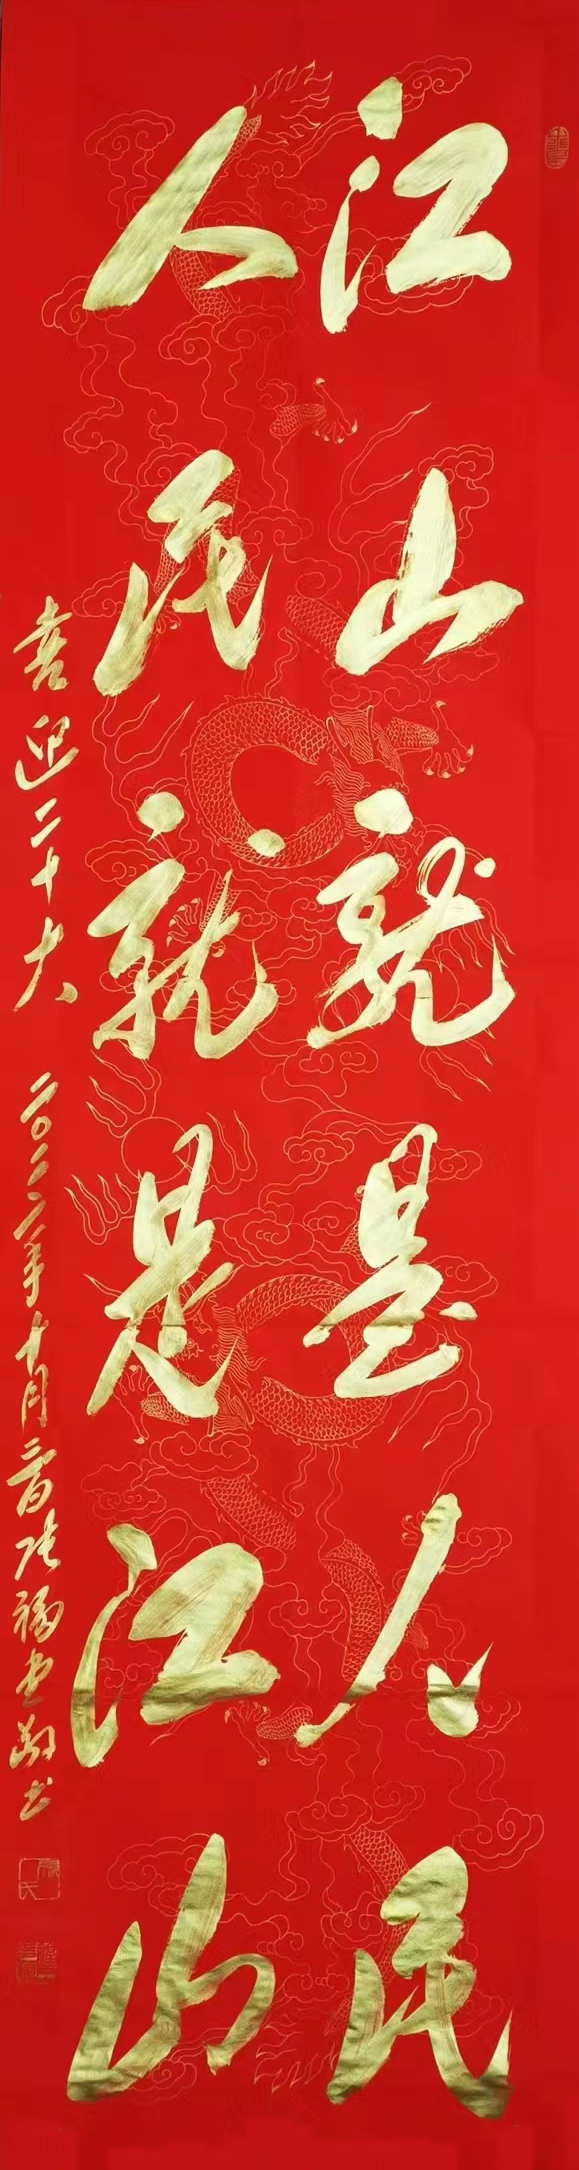 江山就是人民
人民就是江山
喜迎二十大 二〇二二年十月 晋 张福堂 敬书